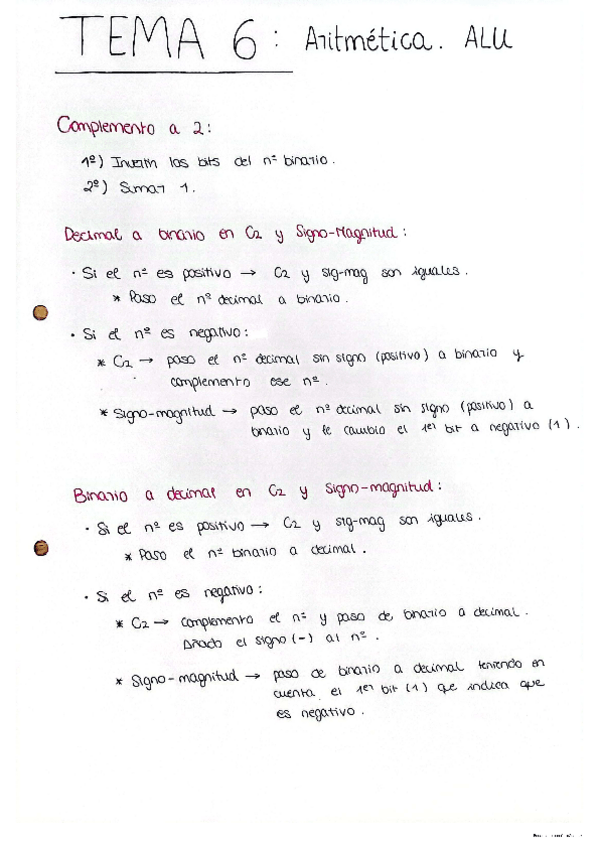 TEMA 6: Aritmética. ALU
Complemento a 2:
1º) Invertir los bits del nº binario.
2º) Sumar 1.
Decimal a binario en C2 y Signo-Magnitud:
· Si el nº es positivo → C2 y sig-mag son iguales.
* Paso el nº decimal a binario.
· Si el nº es negativo:
* C2 → paso el nº decimal sin signo (positivo) a binario y
complemento ese nº.
* Signo-magnitud → paso el nº decimal sin signo (positivo) a
binario y le cambio el 1er bit a negativo (1).
Binario a decimal en C2 y Signo-magnitud:
· Si el nº es positivo → C2 y sig-mag son iguales.
* Paso el nº binario a decimal.
· Si el nº es negativo:
* C2 → complemento el nº y paso de binario a decimal.
Añado el signo (-) al nº.
* Signo-magnitud → paso de binario a decimal teniendo en
cuenta el 1er bit (1) que indica que
es negativo.